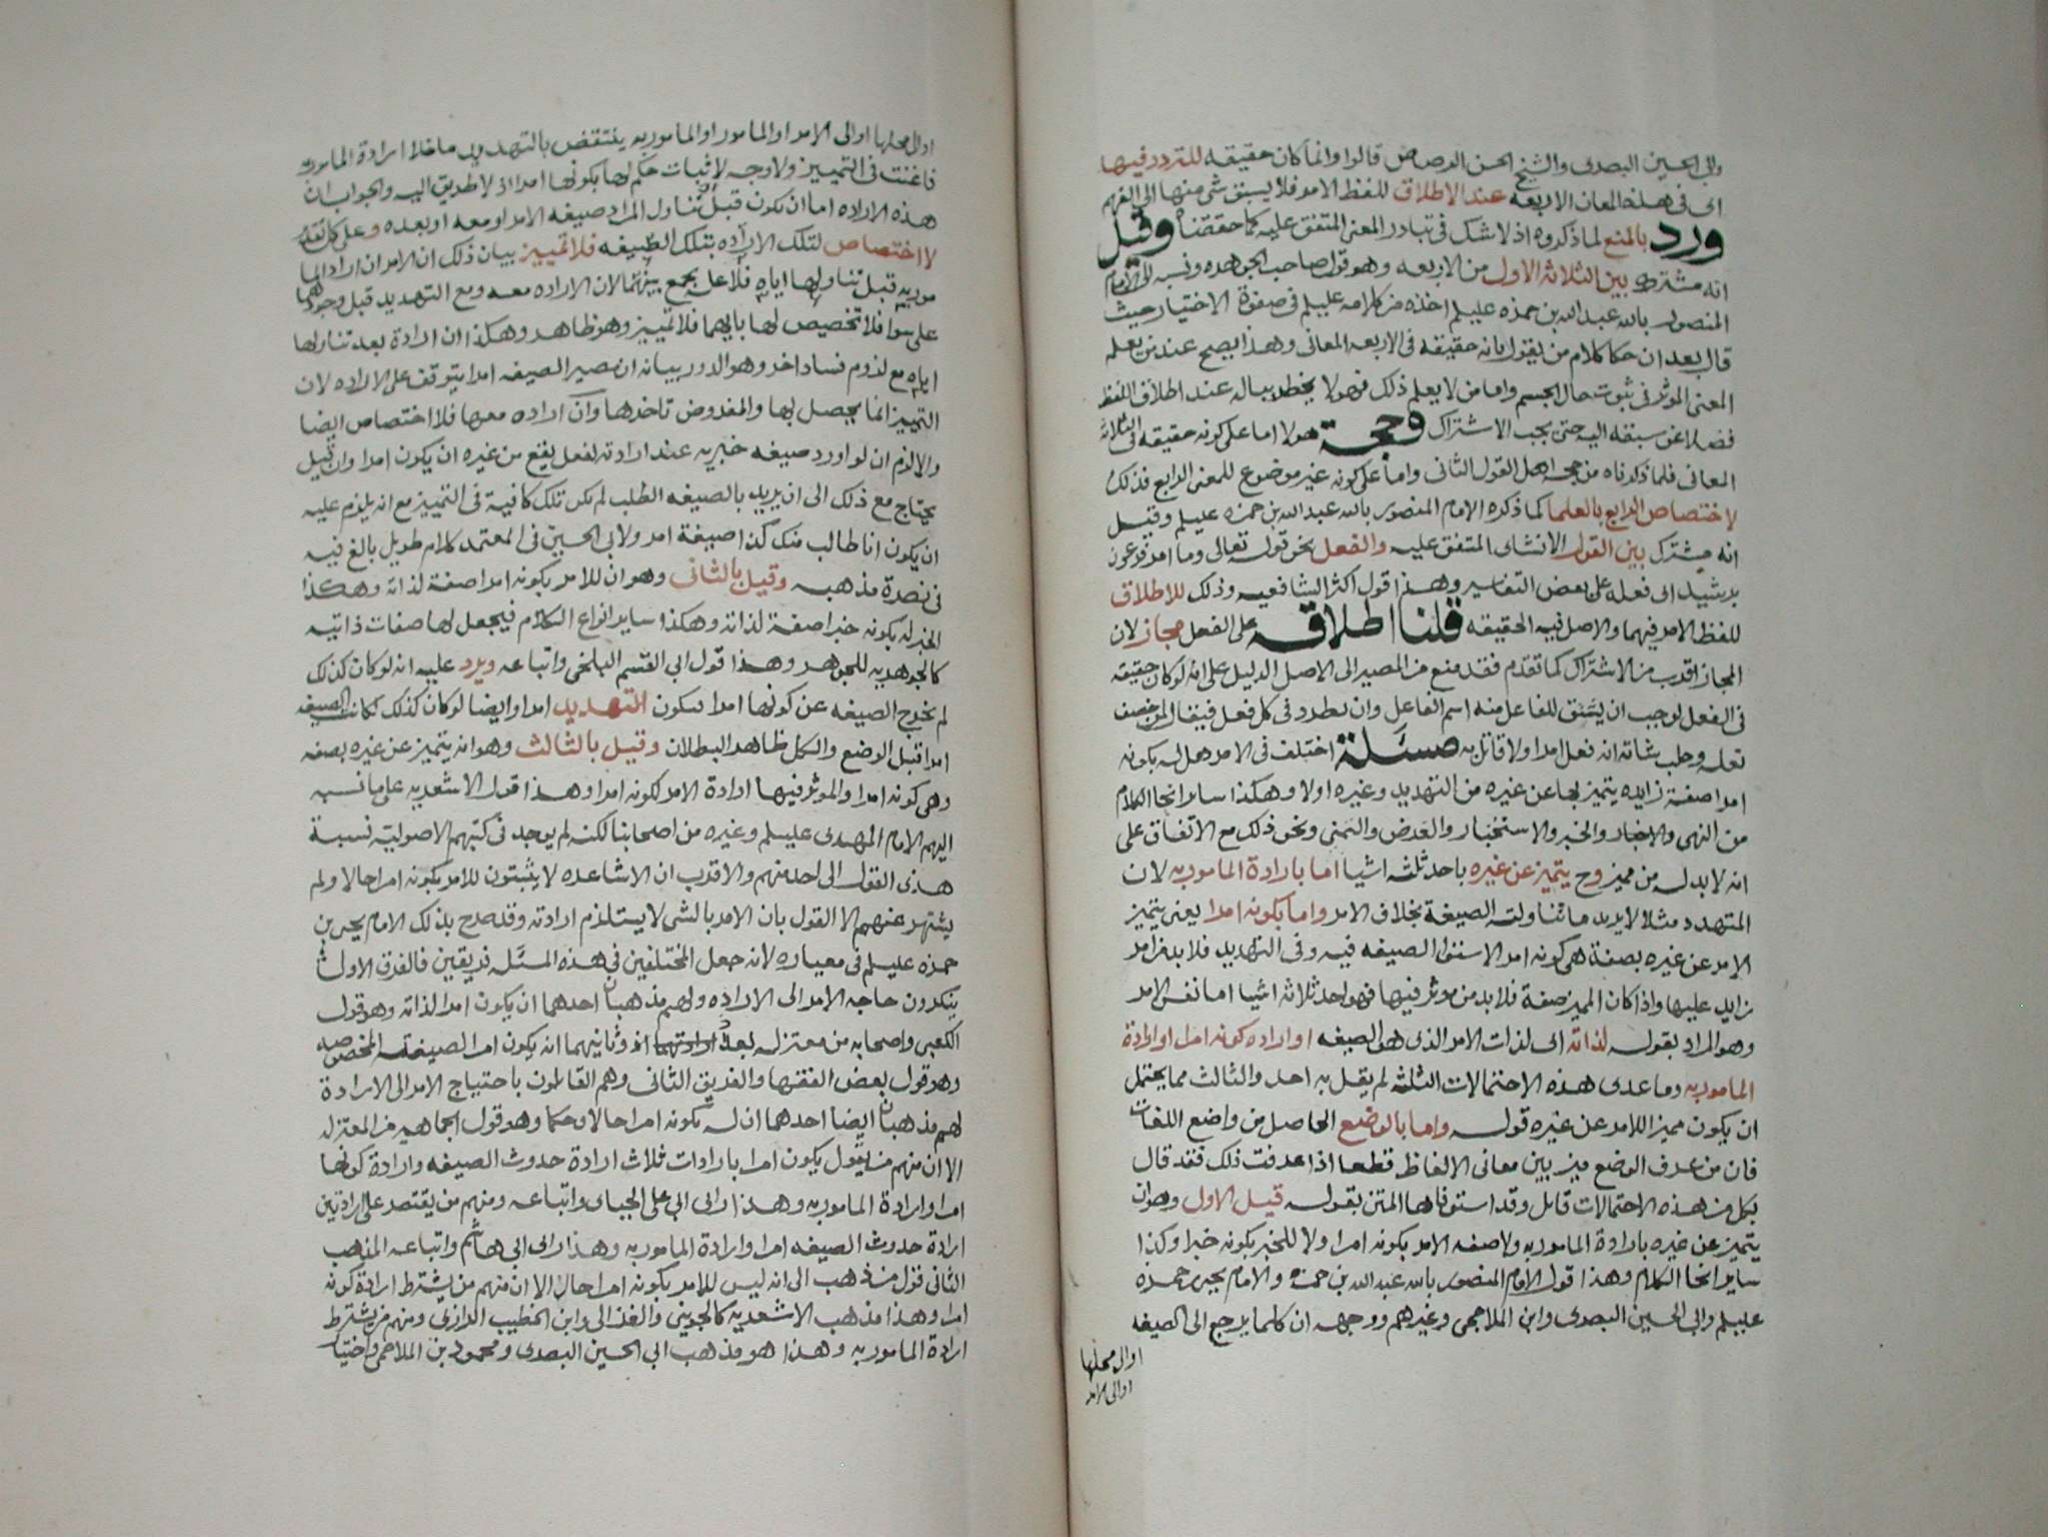 وابي الحسين البصرى والشيخ الحسن الرصاص قالوا وانما كان حقيقه للتردد فيها
اى فى هذه المعان الاربعه عند الاطلاق للفظ الامر فلا يسبق شى منها الى الفهم
ورد بالمنع لما ذكروه اذ لا شك فى تبادر المعنى المتفق عليه كما حققناه وقيل
انه مشترك بين الثلاثه الاول من الاربعه وهو قول صاحب الجوهره ونسبه للامام
المنصور بالله عبدالله بن حمزه عليلم اخذه من كلامه عليلم فى صفوة الاختيار حيث
قال بعد ان حكا كلام من يقول بانه حقيقه فى الاربعه المعانى وهذا يصح عند من يعلم
المعنى الموثر فى ثبوت حال الجسم واما من لا يعلم ذلك فهو لا يخطر بباله عند اطلاق اللفظ
فضلا عن سبقه اليه حتى يجب الاشتراك وحجة هولا اما على كونه حقيقه فى الثلاثه
المعانى فلما ذكرناه من حجه اهل القول الثانى واما على كونه غير موضوع للمعنى الرابع فذلك
لاختصاص الرابع بالعلما كما ذكره الامام المنصور بالله عبدالله بن حمزه عليلم وقيل
انه مشترك بين القول الانشاى المتفق عليه والفعل نحو قوله تعالى وما امر فرعون
برشيد اى فعله على بعض التفاسير وهذا قول اكثر الشافعيه وذلك للاطلاق
للفظ الامر فيهما والاصل فيه الحقيقه قلنا اطلاقه على الفعل مجاز لان
المجاز اقرب من الاشتراك كما تقدم فقد منع من المصير الى الاصل الدليل على انه لو كان حقيقه
فى الفعل لوجب ان يشتق للفاعل منه اسم الفاعل وان يطرد فى كل فعل فيقال لمن خصف
نعله وحلب شاته انه فعل امرا ولا قائل به مسئلة اختلف فى الامر هل له بكونه
امرا صفة زايده يتميز بها عن غيره من التهديد وغيره اولا وهكذا ساير انحا الكلام
من النهى والاخبار والخبر والاستخبار والعرض والتمنى ونحو ذلك مع الاتفاق على
انه لا بد له من مميز وح يتميز عن غيره باحد ثلثه اشيا اما بارادة المامور به لان
المتهدد مثلا لا يريد ما تناولته الصيغة بخلاف الامر واما بكونه امرا يعنى يتميز
الامر عن غيره بصفة هى كونه امرا لاستوا الصيغه فيه وفى التهديد فلا بد من امر
زايد عليها واذا كان المميز صفة فلا بد من موثر فيها فهو احد ثلاثه اشيا اما نفس الامر
وهو المراد بقوله لذاته اى لذات الامر الذى هو الصيغه او اراده كونه امرا او ارادة
المامور به وما عدى هذه الاحتمالات الثلثه لم يقل به احد والثالث مما يحتمل
ان يكون مميزا للامر عن غيره قوله واما بالوضع الحاصل من واضع اللغات
فان من عرف الوضع ميز بين معانى الالفاظ قطعا اذا عرفت ذلك فقد قال
بكل من هذه الاحتمالات قائل وقد استوفاها المتن بقوله قيل الاول وهو ان
يتميز عن غيره بارادة المامور به ولا صفه للامر بكونه امرا ولا للخبر بكونه خبرا وكذا
ساير انحا الكلام وهذا قول الامام المنصور بالله عبدالله بن حمزه والامام يحيى بن حمزه
عليلم وابى الحسين البصرى وابن الملاحمى وغيرهم ووجهه ان كلما يرجع الى الصيغه
او الى محلها
او الى الامر
او الى محلها او الى الامر او المامور او المامور به ينتقض بالتهديد ما خلا ارادة المامور به
فاغنت فى التمييز ولا وجه لاثبات حكم لها بكونها امرا اذ لا طريق اليه والجواب ان
هذه الاراده اما ان تكون قبل تناول المراد صيغه الامر او معه او بعده وعلى كل تقدير
لا اختصاص لتلك الاراده بتلك الصيغه فلا تمييز بيان ذلك ان الامر ان اراد الما
مور به قبل تناولها اياه فلا علة بجمع بينهما لان الاراده معه ومع التهديد قبل وجودهما
على سوا فلا تخصيص لها بايهما فلا تمييز وهو ظاهر وهكذا ان ارادة بعد تناولها
اياه مع لزوم فساد اخر وهو الدور بيانه ان مصير الصيغه امرا يتوقف على الاراده لان
التمييز انما يحصل بها والمفروض تاخرها وان اراده معها فلا اختصاص ايضا
والا لزم ان لو اورد صيغه خبريه عند ارادته لفعل يقع من غيره ان يكون امرا وان قيل
يحتاج مع ذلك الى ان يريد بالصيغه الطلب لم يكن تلك كافية فى التمييز مع انه يلزم عليه
ان يكون انا طالب منك كذا صيغة امر ولابي الحسين فى المعتمد كلام طويل بالغ فيه
فى نصرة مذهبه وقيل بالثانى وهو ان للامر بكونه امرا صفة لذاته وهكذا
الخبر له بكونه خبرا صفة لذاته وهكذا ساير انواع الكلام فيجعل لها صفات ذاتيه
كالجوهريه للجوهر وهذا قول ابى القسم البلخى واتباعه ويرد عليه انه لو كان كذلك
لم يخرج الصيغه عن كونها امرا فيكون التهديد امرا وايضا لو كان كذلك لكانت الصيغه
امرا قبل الوضع والكل ظاهر البطلان وقيل بالثالث وهو انه يتميز عن غيره بصفه
وهى كونه امرا والموثر فيها ارادة الامر لكونه امرا وهذا قول الاشعريه على ما نسبه
اليهم الامام المهدى عليلم وغيره من اصحابنا لكنه لم يوجد فى كتبهم الاصوليه نسبة
هذى القول الى احد منهم والاقرب ان الاشاعره لا يثبتون للامر بكونه امرا حالا ولم
يشتهر عنهم الا القول بان الامر بالشى لا يستلزم ارادته وقد صرح بذلك الامام يحيى بن
حمزه عليلم فى معياره لانه جعل المختلفين فى هذه المسئله فريقين فالفرق الاول
ينكرون حاجه الامر الى الاراده ولهم مذهبان احدهما ان يكون امرا لذاته وهو قول
الكعبى واصحابه من معتزله بغداد وثانيهما انه يكون امرا لصيغته المخصوصه
وهو قول بعض الفقها والفريق الثانى وهم القائلون باحتياج الامر الى الارادة
لهم مذهبان ايضا احدهما ان له بكونه امرا حالا وحكما وهو قول الجماهير من المعتزله
الا ان منهم من يقول يكون امرا بارادات ثلاث ارادة حدوث الصيغه وارادة كونها
امرا وارادة المامور به وهذا راى ابى على الجباى واتباعه ومنهم من يقتصر على ارادتين
ارادة حدوث الصيغه امرا وارادة المامور به وهذا راى ابى هاشم واتباعه المذهب
الثانى قول من ذهب الى انه ليس للامر بكونه امرا حال الا ان منهم من يشترط ارادة كونه
امرا وهذا مذهب الاشعريه كالجوينى والغزالى وابن الخطيب الرازى ومنهم من يشترط
ارادة المامور به وهذا هو مذهب ابى الحسين البصرى ومحمود بن الملاحمى واختيار